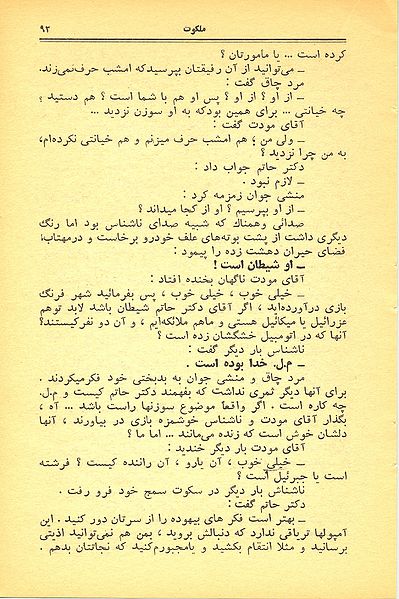 ملکوت ۹۲
کرده است ... یا مأمورتان ؟
ــ می‌توانید از آن رفیقتان بپرسیدکه امشب حرف‌نمی‌زند.
مرد چاق گفت :
ــ از او ؟ از او ؟ پس او هم با شما است ؟ هم دستید ؟
چه خیانتی ... برای همین بودکه به او سوزن نزدید ...
آقای مودت گفت :
ــ ولی من ، هم امشب حرف میزنم و هم خیانتی نکرده‌ام،
به من چرا نزدید ؟
دکتر حاتم جواب داد :
ــ لازم نبود .
منشی جوان زمزمه کرد :
ــ از او بپرسیم ؟ او از کجا میداند ؟
صدائی وهمناك که شبیه صدای ناشناس بود اما رنگ
دیگری داشت از پشت بوته‌های علف خودرو برخاست و درمهتاب،
فضای حیران دهشت زده را پیمود :
ــ او شیطان است !
آقای مودت ناگهان بخنده افتاد :
ــ خیلی خوب ، خیلی خوب ، پس بفرمائید شهر فرنگ
بازی درآورده‌اید ، اگر آقای دکتر حاتم شیطان باشد لابد توهم
عزرائیل یا میکائیل هستی و ماهم ملائکه‌ایم ، و آن دو نفرکیستند؟
آنها که در اتومبیل خشکشان زده است ؟
ناشناس بار دیگر گفت :
ــ م.ل. خدا بوده است .
مرد چاق و منشی جوان به بدبختی خود فکرمیکردند .
برای آنها دیگر ثمری نداشت که بفهمند دکتر حاتم کیست و م.ل.
چه کاره است . اگر واقعا موضوع سوزنها راست باشد ... آه ،
بگذار آقای مودت و ناشناس خوشمزه بازی در بیاورند ، آنها
دلشان خوش است که زنده می‌مانند ... اما ما ؟
آقای مودت بار دیگر خندید :
ــ خیلی خوب ، آن یارو ، آن راننده کیست ؟ فرشته
است یا جبرئیل است ؟
ناشناس بار دیگر در سکوت سمج خود فرو رفت .
دکتر حاتم گفت :
ــ بهتر است فکر های بیهوده را از سرتان دور کنید . این
آمپولها تریاقی ندارد که دنبالش بروید ، بمن هم نمی‌توانید اذیتی
برسانید و مثلا انتقام بکشید و یامجبورم‌کنید که نجاتتان بدهم .